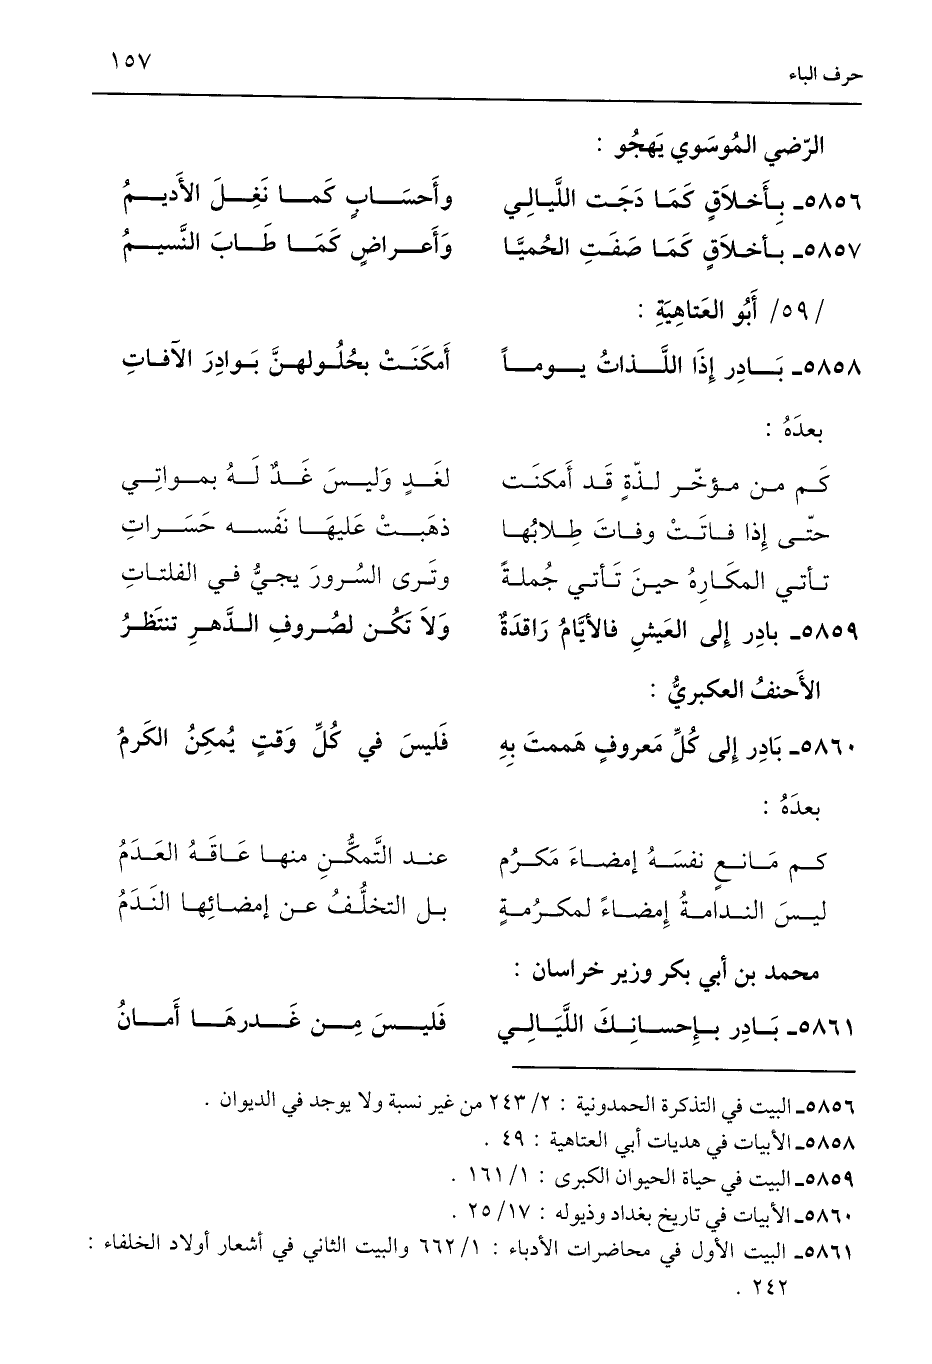 حرف الباء ١٥٧
الرّضي المُوسَوي يَهجُو :
٥٨٥٦ـ بـأخـلاَقٍ كَمَـا دَجَـت اللَّيالِـي وأَحسَـابٍ كمـا نَغِـلَ الأَديـمُ
٥٨٥٧ـ بـأخـلاَقٍ كَمَـا صَفَـتِ الحُميَّـا وَأَعـراضٍ كَمَـا طَـابَ النَّسيـمُ
/٥٩/ أَبُو العَتاهِيَةِ :
٥٨٥٨ـ بَـادِر إِذَا اللَّـذاتُ يـومـاً أَمكَنَـتْ بحُلُـولهـنَّ بَـوادِرَ الآفـاتِ
بعدَهُ :
كَـم مـن مـؤخّـر لـذّةٍ قَـد أَمكنَـت لغَـدٍ وَليـسَ غَـدٌ لَـهُ بمـواتـي
حتّـى إِذا فـاتَـتْ وفـاتَ طِـلابُهـا ذهَبَـتْ عليهَـا نَفسـه حَسَـراتِ
تـأتي المكَـارهُ حيـنَ تَـأتي جُملـةً وتَـرى السُّـرورَ يجيُّ فـي الفلتَـاتِ
٥٨٥٩ـ بادِر إِلى العَيشِ فالأيَّامُ رَاقدَةٌ وَلاَ تَكُـن لصُـروفِ الـدَّهـرِ تنتَظِـرُ
الأَحنفُ العكبريُّ :
٥٨٦٠ـ بَادِر إلى كُلِّ مَعروفٍ هَممتَ بِهِ فَليسَ في كُلِّ وَقتٍ يُمكِنُ الكَرمُ
بعدَهُ :
كـم مَـانـعٍ نفسَـهُ إمضـاءَ مَكـرُمٍ عنـد التَّمكُّـنِ منهـا عَـاقَـهُ العَـدَمُ
ليـسَ النـدامـةُ إِمضـاءً لمكـرُمـةٍ بـل التخلُّـفُ عـن إمضـائِهـا النَـدَمُ
محمد بن أبي بكر وزير خراسان :
٥٨٦١ـ بَـادِر بـإِحسـانِـكَ اللَّيَـالِـي فَليـسَ مِـن غَـدرهَـا أَمـانُ
٥٨٥٦ـ البيت في التذكرة الحمدونية : ٢٤٣/٢ من غير نسبة ولا يوجد في الديوان .
٥٨٥٨ـ الأبيات في هديات أبي العتاهية : ٤٩ .
٥٨٥٩ـ البيت في حياة الحيوان الكبرى : ١٦١/١ .
٥٨٦٠ـ الأبيات في تاريخ بغداد وذيوله : ٢٥/١٧ .
٥٨٦١ـ البيت الأول في محاضرات الأدباء : ٦٦٢/١ والبيت الثاني في أشعار أولاد الخلفاء :
٢٤٢ .